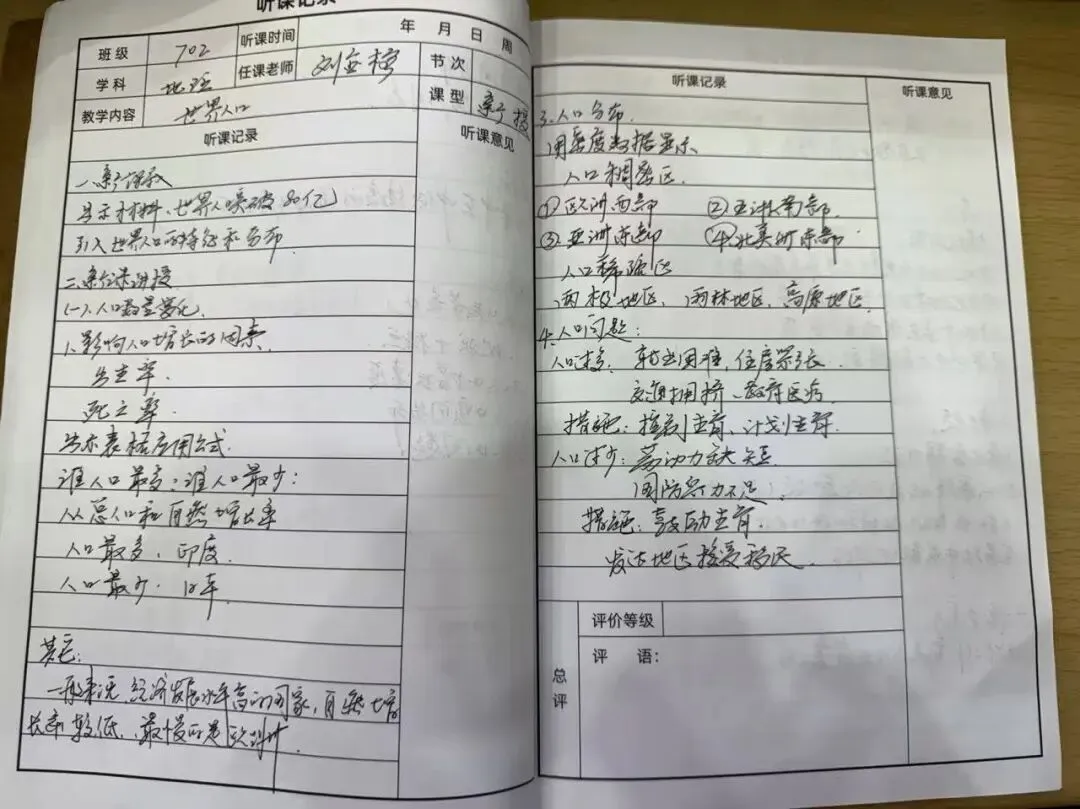 听课记录
班级 702 听课时间 年 月 日 周
学科 地理 任课老师 刘 节次
教学内容 世界人口 课型 新授
听课记录 听课意见
一、新课导入
展示材料、世界人口突破80亿
引入世界人口的特征和分布
二、新课讲授
(一)、人口数量变化
1、影响人口增长的因素
出生率.
死亡率.
展示表格应用公式.
谁人口最多:谁人口最少:
从总人口和自然增长率
人口最多:印度.
人口最少:日本
其它:
一般来说,经济发展水平高的国家,自然增
长率较低、最慢的是欧洲
听课记录 听课意见
3、人口分布.
用密度数据显示
人口稠密区.
①欧洲西部 ②亚洲南部.
③亚洲东部 ④北美洲东部.
人口稀疏区
两极地区、雨林地区、高原地区
4、人口问题:
人口过多:就业困难,住房紧张
交通拥挤、教育医疗
措施:控制生育、计划生育.
人口过少:劳动力缺短.
国防兵力不足.
措施:鼓励生育.
发达地区接受移民.
总评
评价等级
评 语: